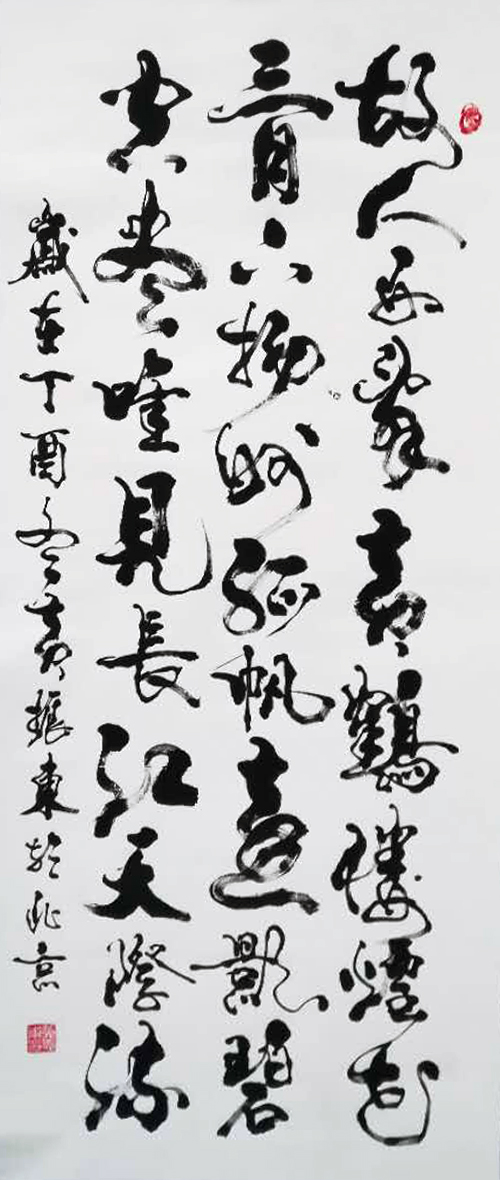 故人西辭黄鶴樓煙花
三月下揚州孤帆遠影碧
空盡唯見長江天際流
歲在丁酉冬黄振東於北京